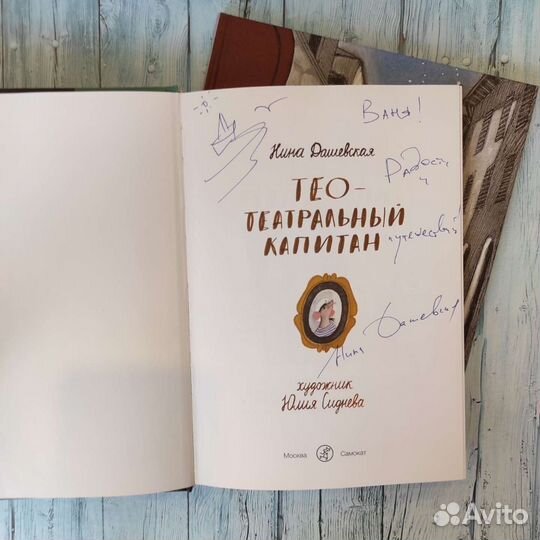 Ваня!
Нина Дашевская
Радости
и
ТЕО-
ТЕАТРАЛЬНЫЙ
КАПИТАН
путешествий!
Нина Дашевская
художник
Юлия Сиднева
Москва Самокат
Avito